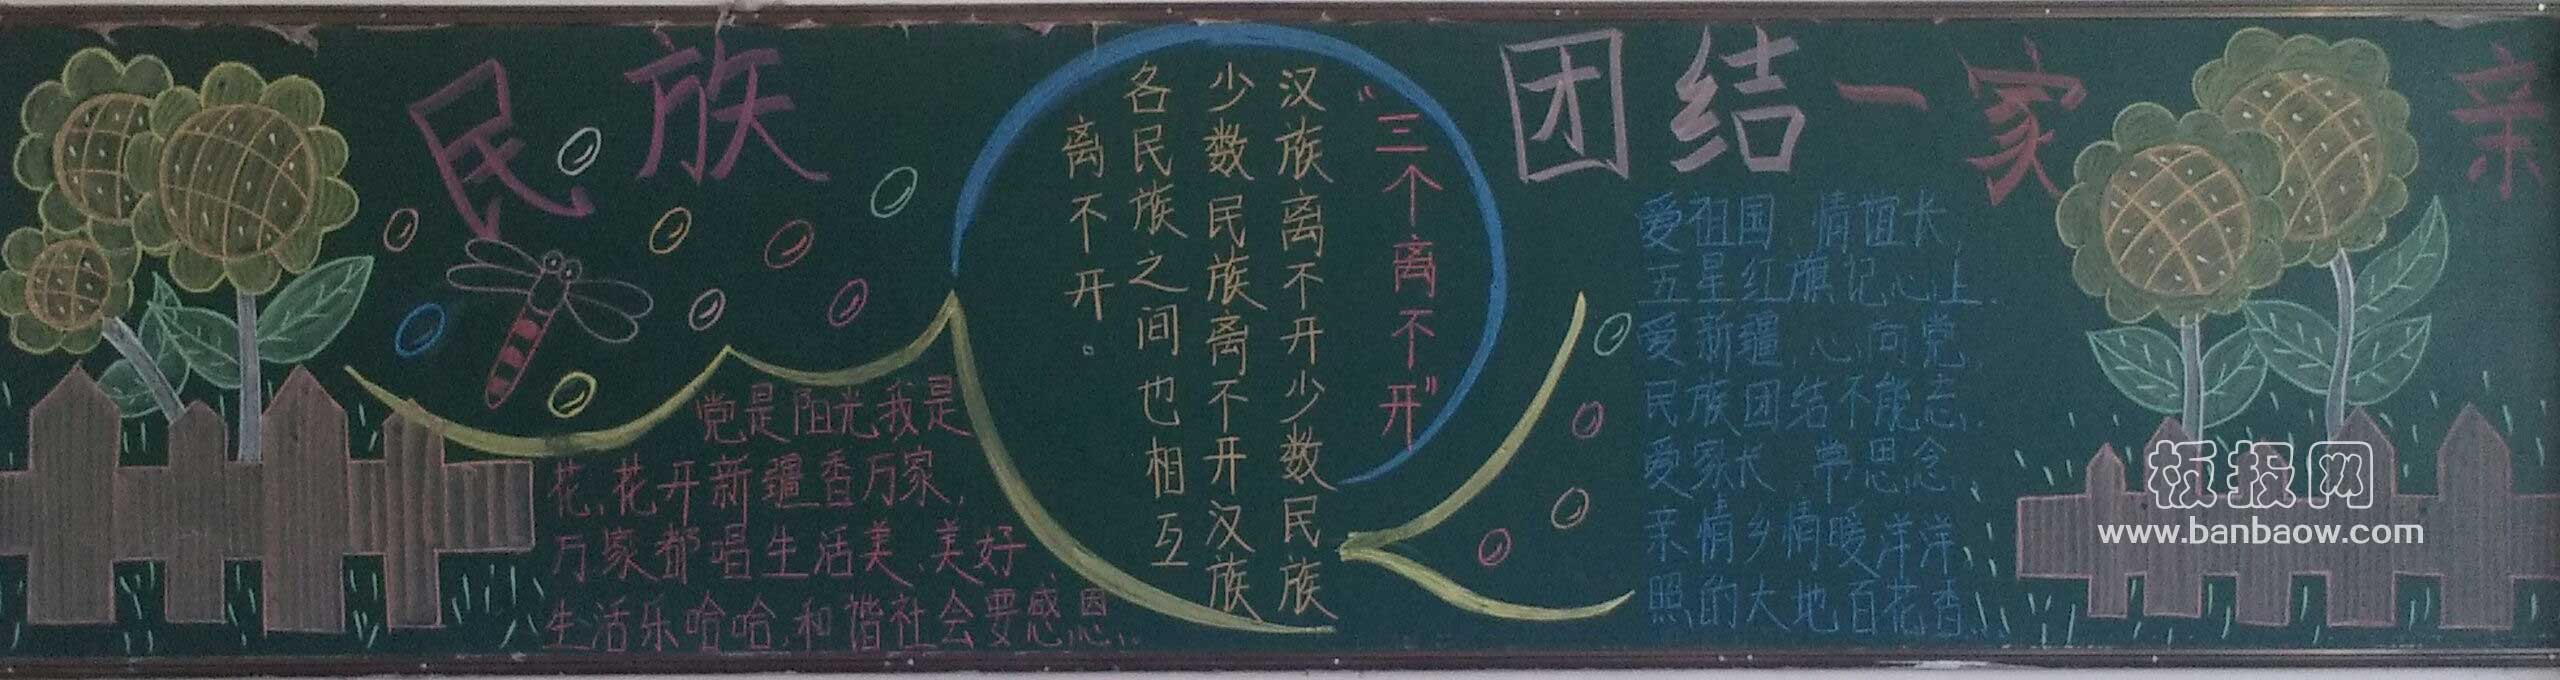 民族团结一家亲
党是阳光我是
花,花开新疆香万家,
万家都唱生活美,美好
生活乐哈哈,和谐社会要感恩.
"三个离不开"
汉族离不开少数民族
少数民族离不开汉族
各民族之间也相互
离不开。
爱祖国,情谊长,
五星红旗记心上.
爱新疆,心向党,
民族团结不能忘.
爱家长,常思念,
亲情乡情暖洋洋
照的大地百花香.
板报网
www.banbaow.com